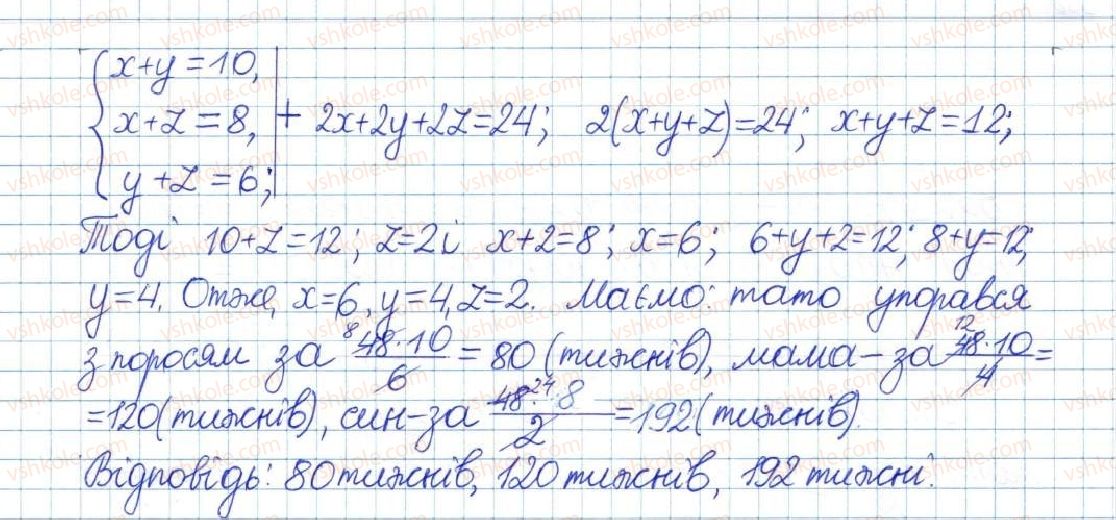 x+y=10,
x+z=8, + 2x+2y+2z=24; 2(x+y+z)=24; x+y+z=12;
y+z=6;
Тоді 10+z=12; z=2 і x+2=8; x=6; 6+y+2=12; 8+y=12;
y=4. Отже, x=6, y=4, z=2. Маємо: тато упорався
з поросям за 8 48·10/6 = 80 (тижнів), мама – за 12 48·10/4 =
=120 (тижнів), син – за 48 24·8/2 =192 (тижнів).
Відповідь: 80 тижнів, 120 тижнів, 192 тижні.